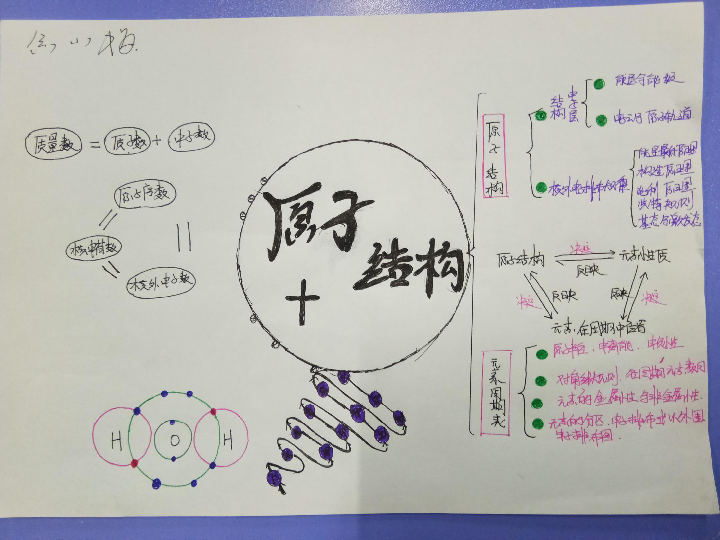 质量数 = 质子数 + 中子数
原子序数
核电荷数
核外电子数
原子
结构
+
H O H
原子结构
电子层结构
质层与能级
电子与原子轨道
核外电子排布规律
能量最低原理
构造原理
泡利原理
洪特规则
基态与激发态
原子结构 决定 元素性质
反映
决定 反映 反映 决定
元素在周期中位置
元素周期表
原子半径、电离能、电负性
对角线规则、在周期元素数目
元素的金属性与非金属性.
元素的分区、电子排布式以外围
电子排布图.